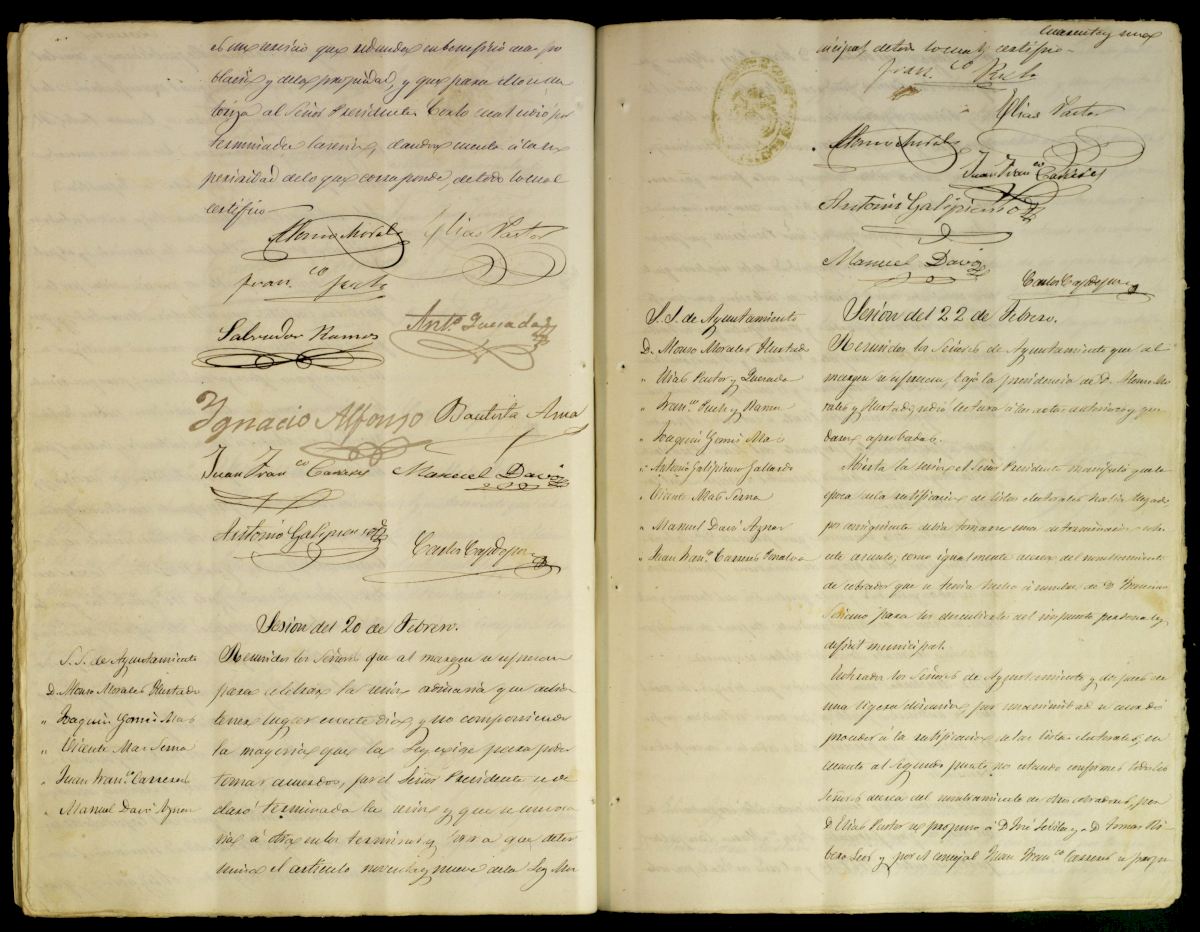 es un servicio que redunda en beneficio de la po
blacion y de la propiedad, y que para ello se au
toriza al Señor Presidente. Con lo cual se dió por
terminada la sesion, dandose cuenta á la su
perioridad de lo que corresponde, de todo lo cual
certifico.
Alonso Morales Elias Pastor
Fran.co Puch
Salvador Ramos Ant.o Quesada
Ygnacio Alfonso Bautista Azna
Juan Fran.co Carreres Manuel Davó
Antonio Galipienso
Carlos
Sesion del 20 de Febrero.
S.S. de Ayuntamiento
D. Alonso Morales Hurtado
" Joaquin Gomis Mas
" Vicente Mas Serna
" Juan Fran.co Carreres
" Manuel Davó Aznar
Reunidos los Señores que al margen se espresan
para celebrar la sesion ordinaria que debia
tener lugar en este dia, y no componiendo
la mayoria que la Ley exige para poder
tomar acuerdos, por el Señor Presidente se de
claró terminada la sesion y que se convoca
ria á otra en los terminos y forma que deter
mina el articulo noventa y nueve de la Ley Mu
Cuarenta y nueve
nicipal, de todo lo cual certifico.
Fran.co Puch
Elias Pastor
Alonso Morales
Juan Fran.co Carreres
Antonio Galipienso
Manuel Davó
Carlos
Sesion del 22 de Febrero.
S.S. de Ayuntamiento
D. Alonso Morales Hurtado
" Elias Pastor y Quesada
" Fran.co Puch y Ramos
" Joaquin Gomis Mas
" Antonio Galipienso Gallardo
" Vicente Mas Serna
" Manuel Davó Aznar
" Juan Fran.co Carreres Penalva
Reunidos los Señores de Ayuntamiento que al
margen se espresan, bajo la presidencia de D. Alonso Mo
rales y Hurtado, se dió lectura á las actas anteriores y que
daron aprobadas.
Abierta la sesion el Señor Presidente manifestó que la
epoca de la rectificacion de listas electorales habia llegado,
por consiguiente debia tomarse una determinacion sobre
este asunto, como igualmente acerca del nombramiento
de cobrador que se tenia hecho á nombre de D. Francisco
Soriano para los descubiertos del impuesto personal y
deficit municipal.
Enterados los Señores de Ayuntamiento y despues de
una ligera discusion, por unanimidad se acordó
proceder á la rectificacion de las listas electorales, en
cuanto al segundo punto, no estando conformes todos los
Señores acerca del nombramiento de otros cobradores, por
D. Elias Pastor se propuso á D. José y á D. Tomas Ri
bera y por el concejal Juan Fran.co Carreres se propu